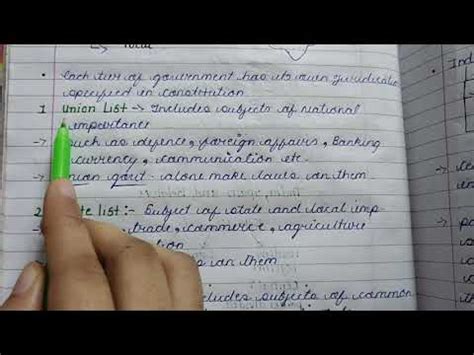 • Each tier of government has its own jurisdiction
specified in constitution
1 Union List -> Includes subjects of national
importance
-> Such as defence, foreign affairs, Banking
currency, communication etc.
-> Union govt - alone make laws on them
2 list :- Subject of state and local imp-
trade, commerce, agriculture
on them
includes subjects of common
Ind